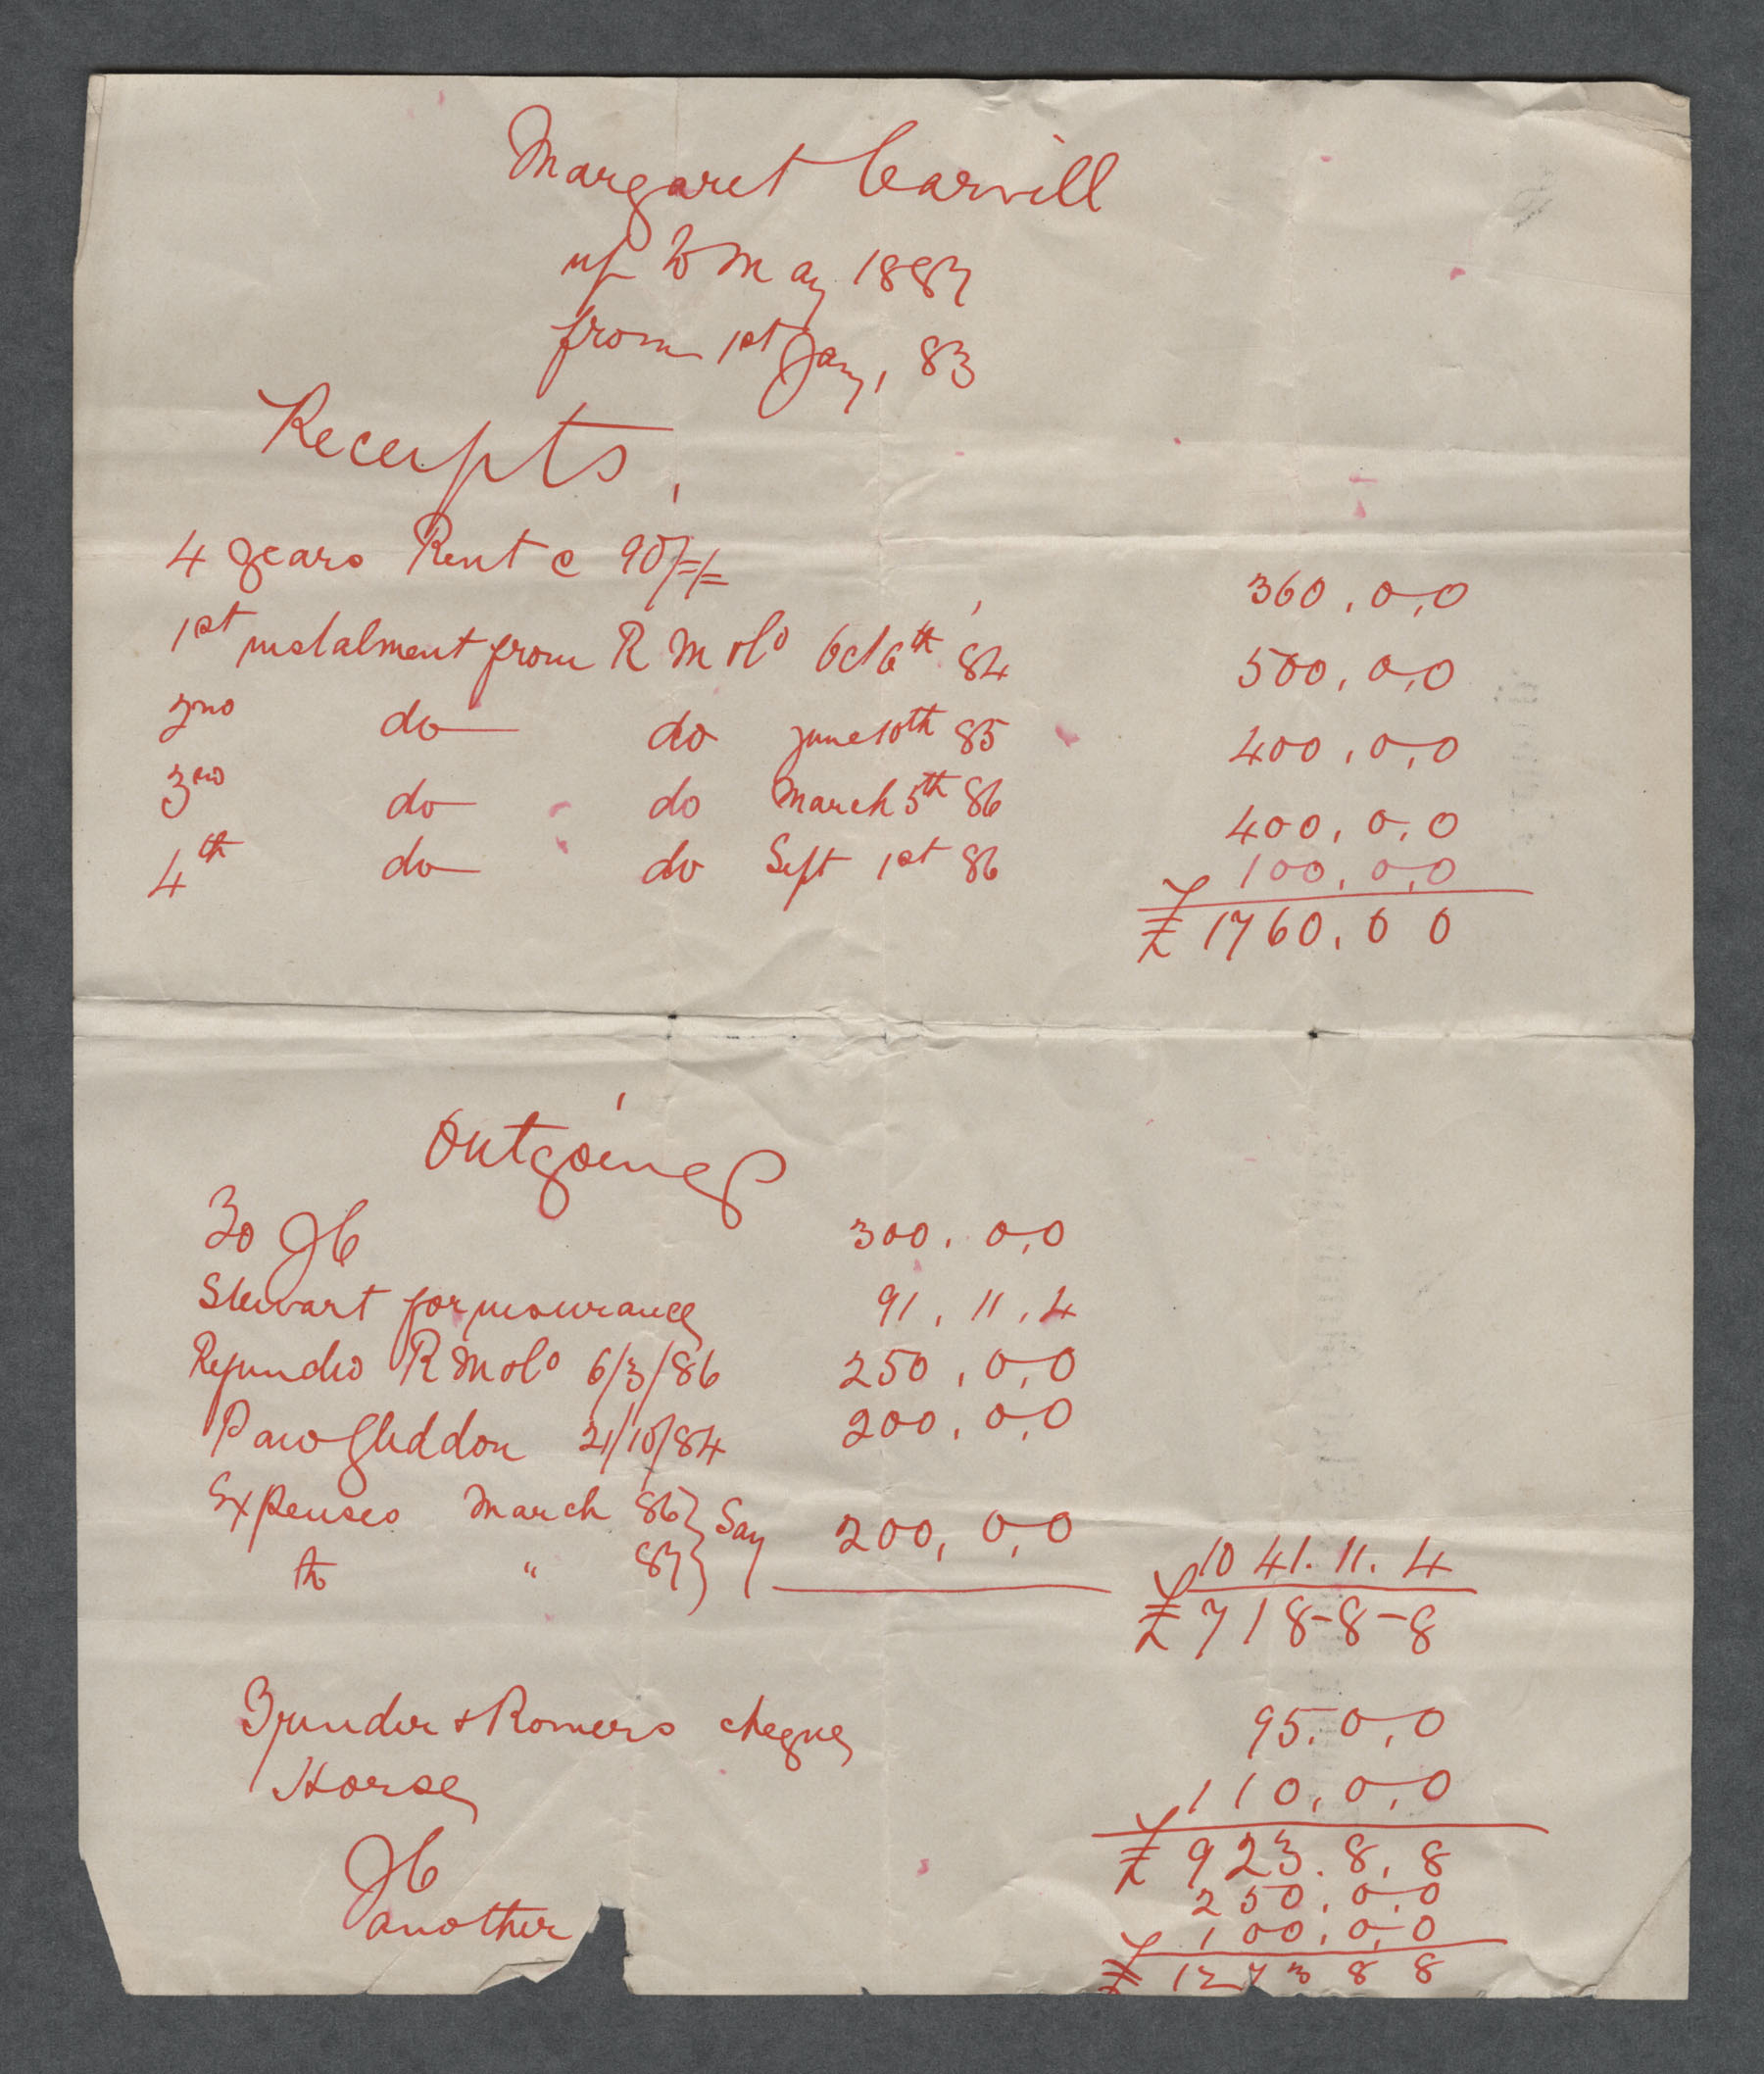 Margaret Carvill
up to May 1887
from 1st Jany, 83
Receipts,
4 years Rent @ 90/=/= 360.0.0
1st instalment from R M Oct 6th 84 500.0.0
2nd do do June 10th 85 400.0.0
3rd do do March 5th 86 400.0.0
4th do do Sept 1st 86 100.0.0
£ 1760.0 0
Outgoings
To JC 300.0.0
Stewart for insurance 91.11.4
Refunded R M 6/3/86 250.0.0
Gleddon 21/10/84 200.0.0
Expenses March 86 } Say 200.0.0
to " 87 } 1041.11.4
£ 718-8-8
& Romers cheque 95.0.0
Horse 110.0.0
£ 923.8.8
JC 250.0.0
another 100.0.0
£ 1273 8 8